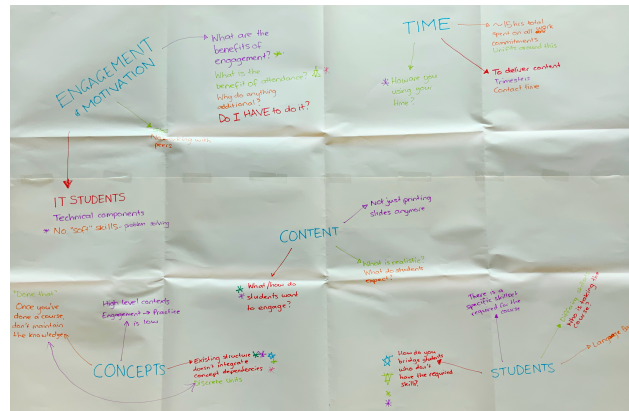 ENGAGEMENT
& MOTIVATION
What are the
benefits of
engagement?
What is the
benefit of attendance?
Why do anything
additional?
Do I HAVE to do it?
with
peers
TIME
~15 hrs total
spent on all work
commitments
Units around this
To deliver content
Trimesters
Contact time
How are you
using your
time?
IT STUDENTS
Technical components
No "soft" skills - problem solving
CONTENT
Not just printing
slides anymore
What is realistic?
What do students
expect?
What/how do
students want
to engage?
"Done that"
Once you've
done a course,
don't maintain
the knowledge
High level contexts
Engagement → Practice
is low
CONCEPTS
Existing structure
doesn't integrate
concept dependencies
Discrete Units
There is a
specific skillset
required for the
course
Who is taking the
course?
Language
How do you
bridge students
who don't
have the required
skills?
STUDENTS